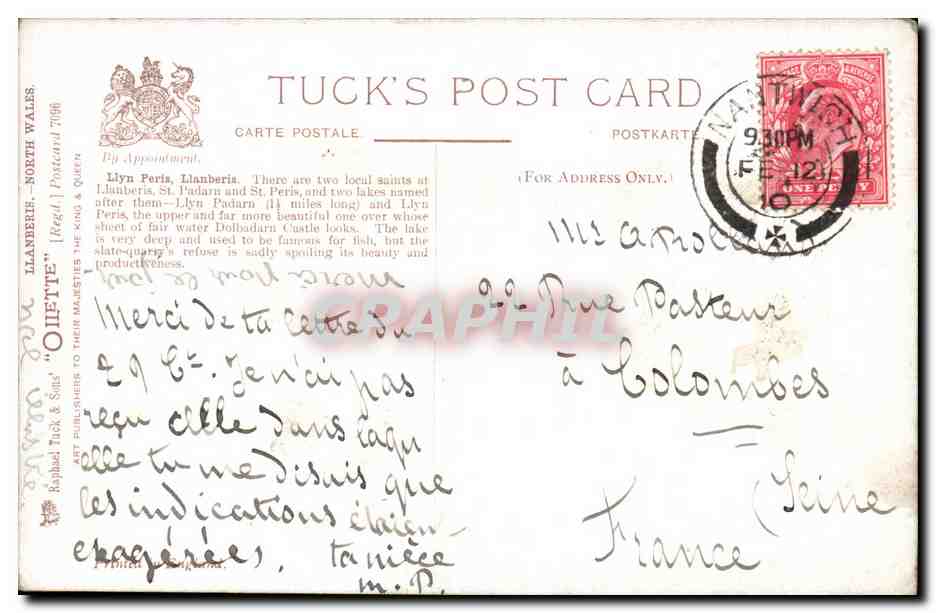 TUCK'S POST CARD
CARTE POSTALE.
POSTKARTE
By Appointment.
(FOR ADDRESS ONLY.)
Llyn Peris, Llanberis. There are two local saints at
Llanberis, St. Padarn and St. Peris, and two lakes named
after them—Llyn Padarn (1¼ miles long) and Llyn
Peris, the upper and far more beautiful one over whose
sheet of fair water Dolbadarn Castle looks. The lake
is very deep and used to be famous for fish, but the
slate-quarry's refuse is sadly spoiling its beauty and
productiveness.
merci pour le
Merci de ta lettre du
29 Ct. Je n'ai pas
reçu celle dans laqu
elle tu me disais que
les indications étaien
exagérées, ta nièce
M.P.
Printed in England.
LLANBERIS.—NORTH WALES.
"OILETTE" [Regd.] Postcard 7096
Raphael Tuck & Sons'
ART PUBLISHERS TO THEIR MAJESTIES THE KING & QUEEN
NANTWICH
9.30PM
FE 12
10
ONE PENNY
Mr
22 Rue Pasteur
à Colombes
(Seine
France
CRAPHIL